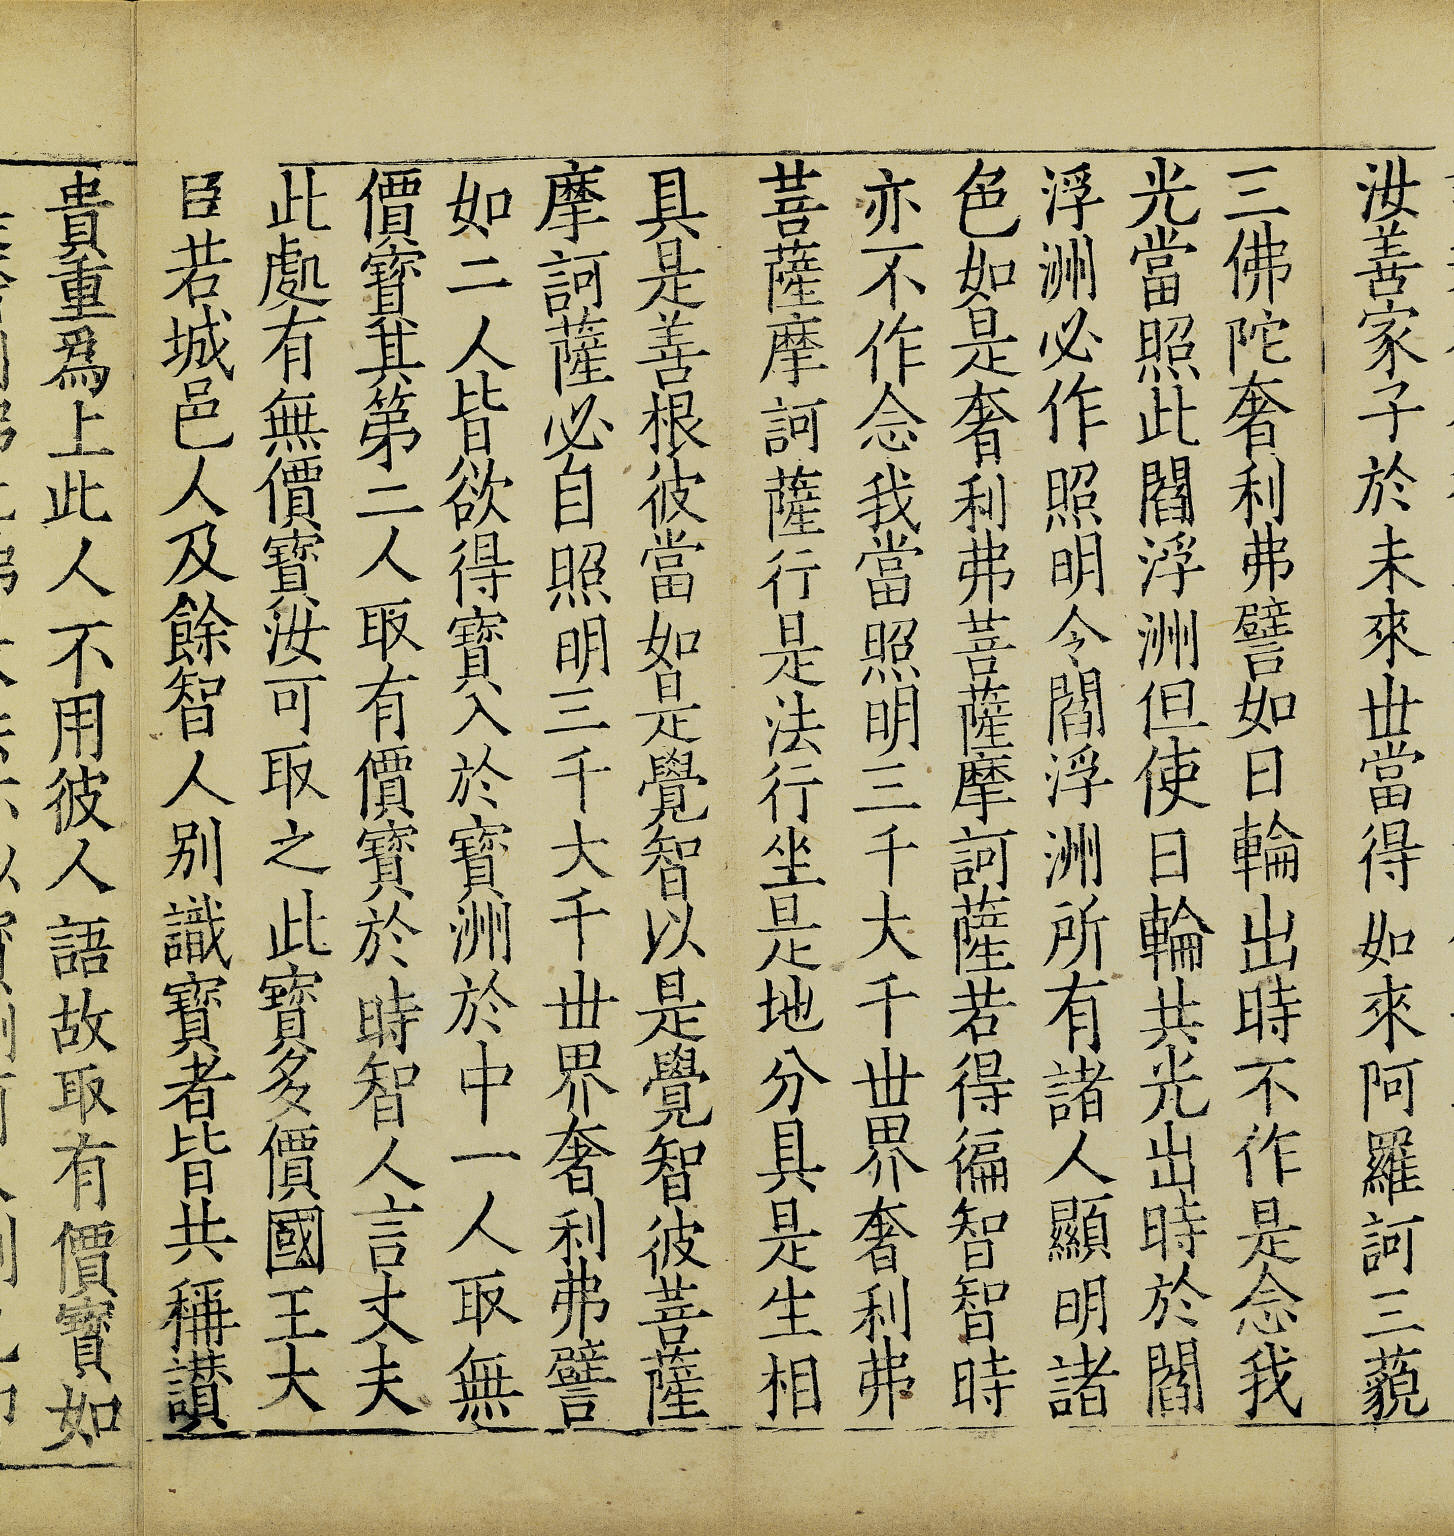 汝善家子於未來世當得如來阿羅訶三藐
三佛陀奢利弗譬如日輪出時不作是念我
光當照此閻浮洲但使日輪共光出時於閻
浮洲必作照明令閻浮洲所有諸人顯明諸
色如是奢利弗菩薩摩訶薩若得徧智智時
亦不作念我當照明三千大千世界奢利弗
菩薩摩訶薩行是法行坐是地分具是生相
具是善根彼當如是覺智以是覺智彼菩薩
摩訶薩必自照明三千大千世界奢利弗譬
如二人皆欲得寶入於寶洲於中一人取無
價寶其第二人取有價寶於時智人言丈夫
此處有無價寶汝可取之此寶多價國王大
臣若城邑人及餘智人別識寶者皆共稱讃
貴重爲上此人不用彼人語故取有價寶如